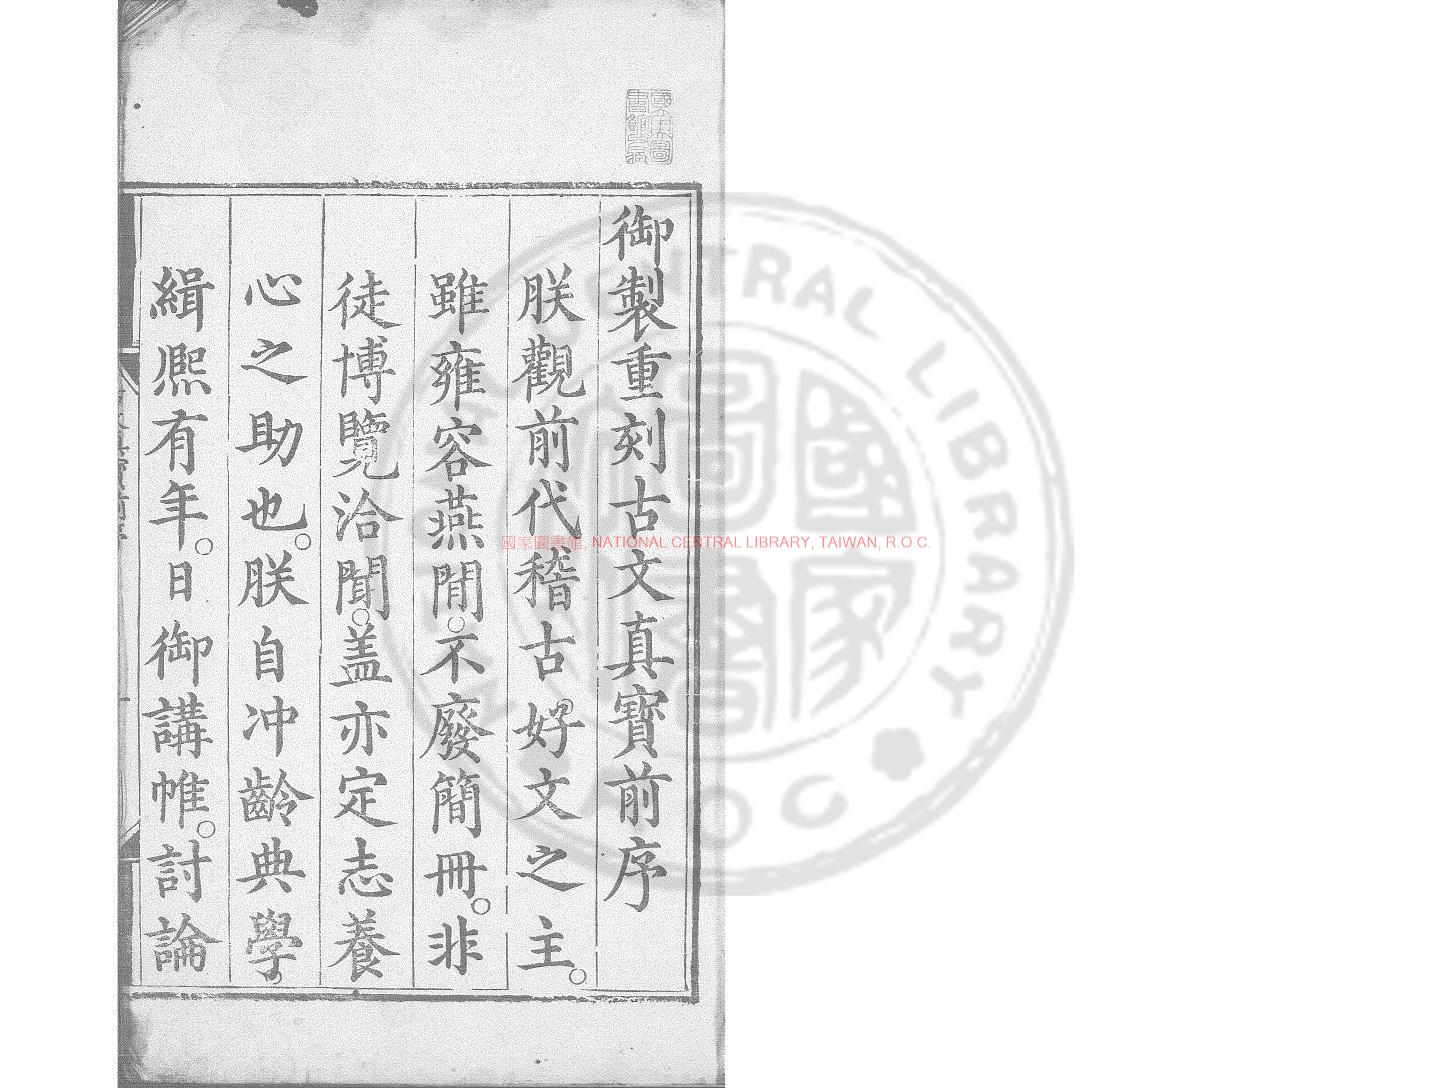 御製重刻古文真寳前序
朕觀前代稽古。好文之主。
雖雍容燕閒。不廢簡冊。非
徒博覽洽聞。盖亦定志養
心之助也。朕自冲齡典學。
緝熈有年。日御講帷。討論
國家圖書館, NATIONAL CENTRAL LIBRARY, TAIWAN, R.O.C.
國家圖書館藏
CENTRAL LIBRARY
R.O.C